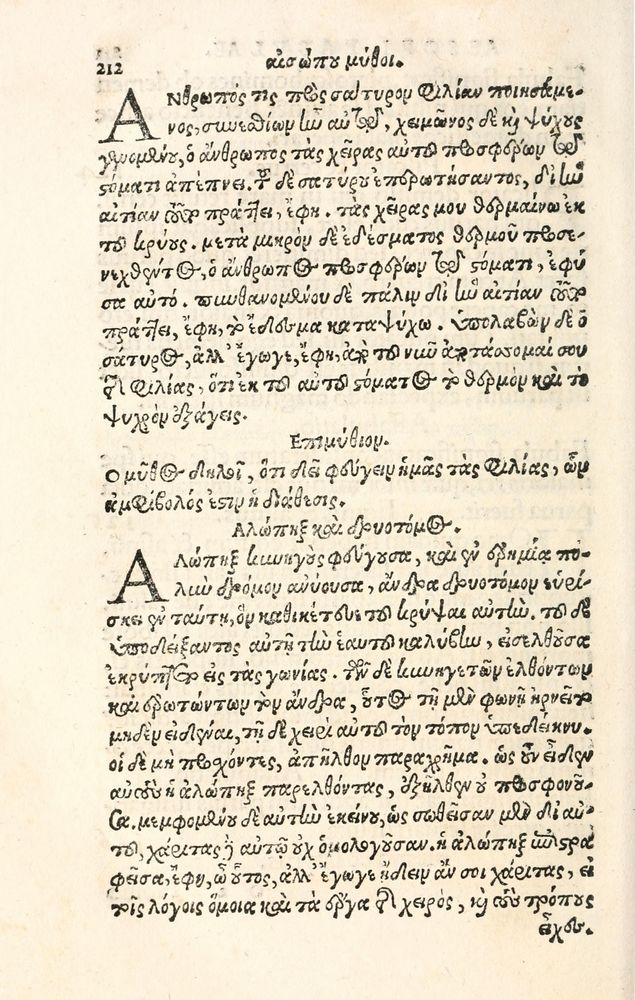 212
αἰσώπου μῦθοι.
ΑΝθρωπός τις πρὸς σάτυρον φιλίαν ποιησάμε-
νος, συνεσθίων ἦν αὐτῷ, χειμῶνος δὲ καὶ ψύχους
γενομένου, ὁ ἄνθρωπος τὰς χεῖρας αὐτοῦ προσφέρων τῷ
στόματι ἀπέπνει. τοῦ δὲ σατύρου ἐπερωτήσαντος, δι' ἣν
αἰτίαν τοῦτο πράττει, ἔφη. τὰς χεῖράς μου θερμαίνω ἐκ
τοῦ κρύους. μετὰ μικρὸν δὲ ἐδέσματος θερμοῦ προσε-
νεχθέντος, ὁ ἄνθρωπος προσφέρων τῷ στόματι, ἐφύ-
σα αὐτό. πυνθανομένου δὲ πάλιν δι' ἣν αἰτίαν τοῦτο
πράττει, ἔφη, τὸ ἔδεσμα καταψύχω. ὑπολαβὼν δὲ ὁ
σάτυρος, ἀλλ' ἔγωγε, ἔφη, ἀπὸ τοῦ νῦν ἀποτάσσομαί σου
τῆς φιλίας, ὅτι ἐκ τοῦ αὐτοῦ στόματος τὸ θερμὸν καὶ τὸ
ψυχρὸν ἐξάγεις.
Επιμύθιον.
Ο μῦθος δηλοῖ, ὅτι δεῖ φεύγειν ἡμᾶς τὰς φιλίας, ὧν
ἀμφίβολός ἐστιν ἡ διάθεσις.
Αλώπηξ καὶ δρυοτόμος.
ΑΛώπηξ κυνηγοὺς φεύγουσα, καὶ ἐν ἐρημίᾳ πο-
λὺν δρόμον ἀνύουσα, ἄνδρα δρυοτόμον εὑρί-
σκει ἐν ταύτῃ, ὃν καθικέτευε τοῦ κρύψαι αὐτήν. τοῦ δὲ
ὑποδείξαντος αὐτῇ τὴν ἑαυτοῦ καλύβην, εἰσελθοῦσα
ἐκρύπτετο εἰς τὰς γωνίας. τῶν δὲ κυνηγετῶν ἐλθόντων
καὶ ἐρωτώντων τὸν ἄνδρα, οὗτος τῇ μὲν φωνῇ ἠρνεῖτο
μηδὲν εἰδέναι, τῇ δὲ χειρὶ αὐτοῦ τὸν τόπον ὑπεδείκνυ.
οἱ δὲ μὴ προσχόντες, ἀπῆλθον παραχρῆμα. ὡς οὖν εἶδεν
αὐτοὺς ἡ ἀλώπηξ παρελθόντας, ἐξῆλθεν οὐ προσφωνοῦ-
σα. μεμφομένου δὲ αὐτὴν ἐκείνου, ὡς σωθεῖσαν μὲν δι' αὐ-
τοῦ, χάριτας δὲ αὐτῷ οὐχ ὁμολογοῦσαν. ἡ ἀλώπηξ ἐπιστρα
φεῖσα, ἔφη, ὦ οὗτος, ἀλλ' ἔγωγε ᾔδειν ἄν σοι χάριτας, εἰ
τοῖς λόγοις ὅμοια καὶ τὰ ἔργα τῆς χειρὸς, καὶ τοὺς τρόπους
εἶχες.